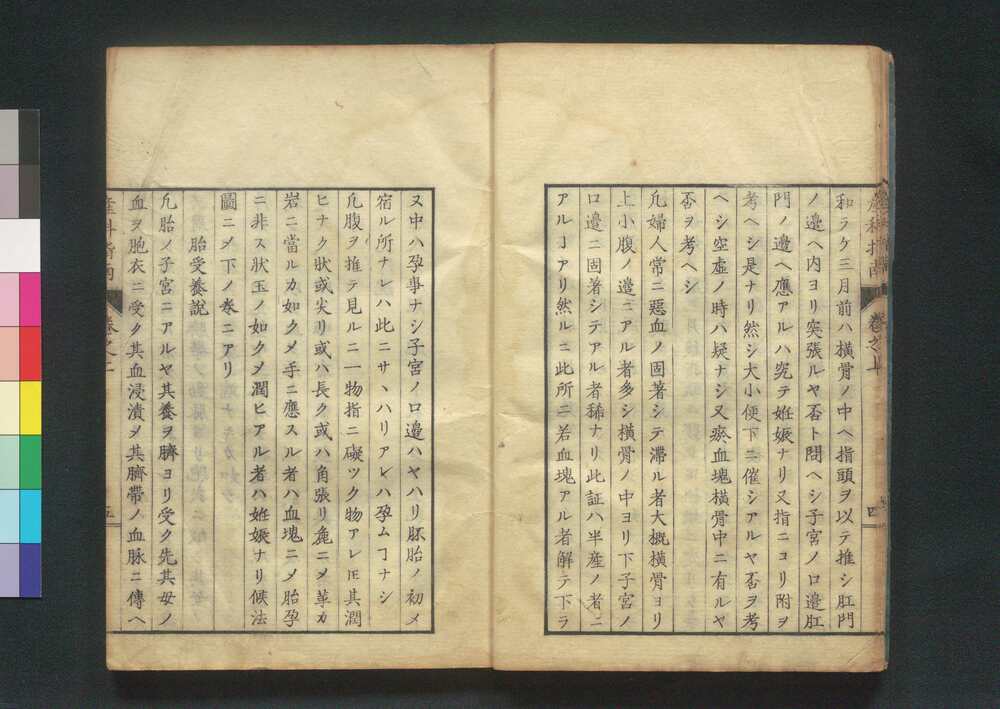 産科指南 巻之上 四
和ラケ三月前ハ横骨ノ中ヘ指頭ヲ以テ推シ肛門
ノ邉ヘ内ヨリ突張ルヤ否ト問ヘシ子宮ノ口邉肛
門ノ邉ヘ應アルハ究テ姙娠ナリ又指ニコリ附ヲ
考ヘシ是ナリ然シ大小便下ニ催シアルヤ否ヲ考
ヘシ空虚ノ時ハ疑ナシ又瘀血塊横骨中ニ有ルヤ
否ヲ考ヘシ
凢婦人常ニ惡血ノ固著シテ滞ル者大概横骨ヨリ
上小腹ノ邉ニアル者多シ横骨ノ中ヨリ下子宮ノ
口邉ニ固著シテアル者稀ナリ此証ハ半産ノ者ニ
アルヿアリ然ルニ此所ニ若血塊アル者解テ下ラ
ヌ中ハ孕事ナシ子宮ノ口邉ハヤハリ胚胎ノ初メ
宿ル所ナレハ此ニサヽハリアレハ孕ムヿナシ
凢腹ヲ推テ見ルニ一物指ニ礙ツク物アレ𪜈其潤
ヒナク状或尖リ或ハ長ク或ハ角張リ麁ニメ革カ
岩ニ當ルカ如クメ手ニ應スル者ハ血塊ニメ胎孕
ニ非ス状玉ノ如クメ潤ヒアル者ハ姙娠ナリ候法
圖ニメ下ノ巻ニアリ
胎受養説
凢胎ノ子宮ニアルヤ其養ヲ臍ヨリ受ク先其母ノ
血ヲ胞衣ニ受ク其血浸漬メ其臍帯ノ血脉ニ傳ヘ
産科指南 巻之上 五